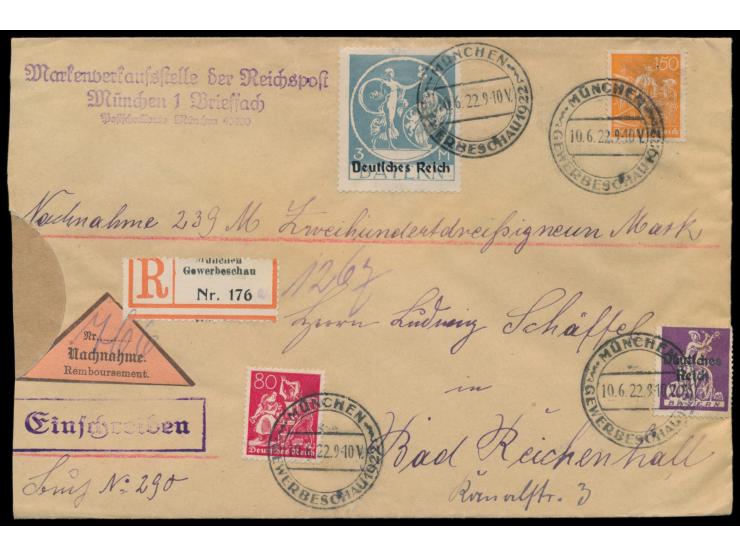 Markenverkaufsstelle der Reichspost
München 1 Brieffach
Postscheckkonto München
3 M
BAYERN
Deutsches Reich
MÜNCHEN
10.6.22.9-10V.
GEWERBESCHAU 1922
150
MÜNCHEN
10.6.22.9-10V.
GEWERBESCHAU 1922
Nachnahme 239 M Zweihundertdreißigneun Mark
R
München
Gewerbeschau
Nr. 176 a
1267
Herrn Ludwig Schäffel
Nr.
Nachnahme.
Remboursement.
Deutsches
Reich
BAYERN
MÜNCHEN
10.6.22.9-10V.
GEWERBESCHAU 1922
80
Deutsches Reich
MÜNCHEN
22.9-10V.
GEWERBESCHAU 1922
in
Einschreiben
Bad Reichenhall
Buch No 290
Kanalstr. 3